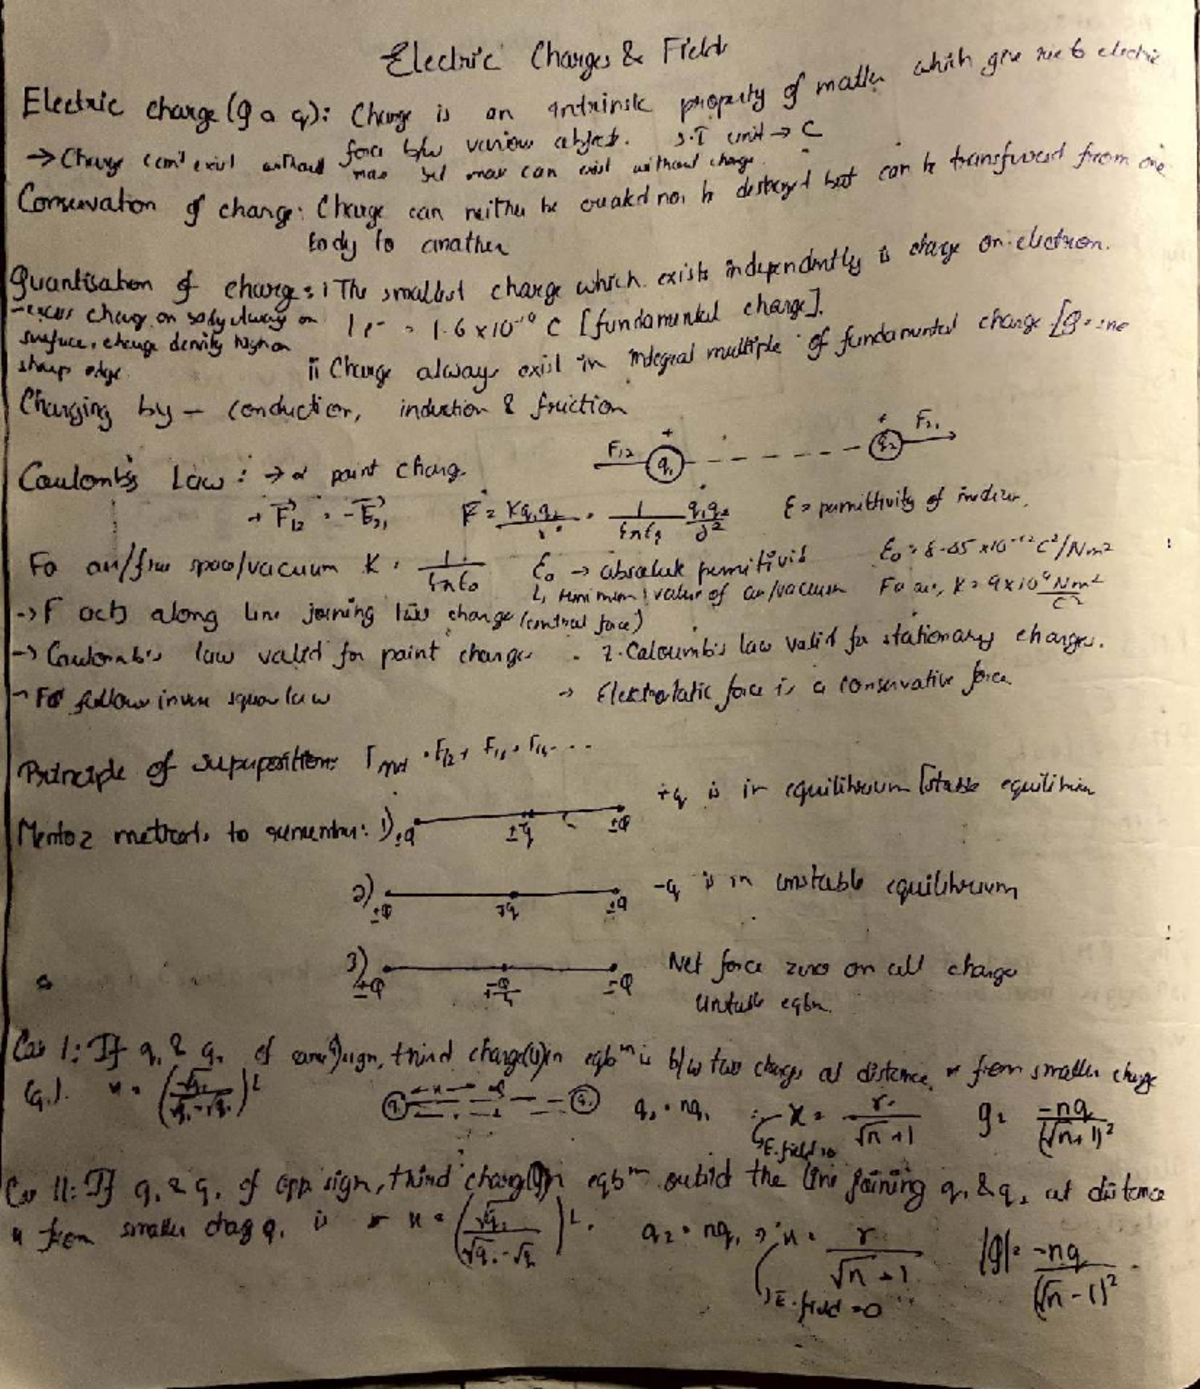 Electric Charges & Fields
Electric charge (Q or q): Charge is an intrinsic property of matter which give rise to electric
force b/w various objects. S.I unit → C
→ Charge can't exist without mass but mass can exist without charge.
Conservation of charge: Charge can neither be created nor be destroyed but can be transferred from one
body to another
Quantisation of charge: i The smallest charge which exists independently is charge on electron.
1 e⁻ = 1.6 x 10⁻¹⁹ C [fundamental charge].
- excess charge on body always on
surface, charge density high on
sharp edge.
ii Charge always exist in integral multiple of fundamental charge [Q = ±ne
Charging by - conduction, induction & friction
F₁₂ + q₁ + q₂ F₂₁
Coulomb's Law: → point charge
→ F₁₂ = -F₂₁ F = Kq₁q₂/r² = 1/4πε q₁q₂/r² ε = permittivity of medium.
For air/free space/vacuum K = 1/4πε₀ ε₀ → absolute permittivity ε₀ = 8.85 x 10⁻¹² C²/Nm²
minimum value of air/vacuum For air, K = 9 x 10⁹ Nm²/C²
→ F acts along line joining two charge (central force)
→ Coulomb's law valid for point charges . 2. Caloumb's law valid for stationary charges.
→ follow inverse square law → Electrostatic force is a conservative force
Principle of superposition: = F₁₂ + F₁₃ + F₁₄ ...
methods to remember: 1) ±q ±Q +q is in equilibrium [stable equilibrium
2) ±Q ∓q ±Q -q is in unstable equilibrium
3) ±Q ∓Q/4 ±Q Net force zero on all charge
Unstable eqbm.
Case I: If q₁ & q₂ of same sign, third charge (Q) in eqbᵐ is b/w two charges at distance x from smaller charge
(q₁). q₁ q₂ q₂ = nq₁ x = r/√n + 1 Q = -nq/(√n+1)²
E. field is
Case II: If q₁ & q₂ of opp sign, third charge (Q) in eqbᵐ outsid the line joining q₁ & q₂ at distance
x from smaller charge q₁ is q₂ = nq₁ |Q| = -nq/(√n - 1)²
E. field = 0